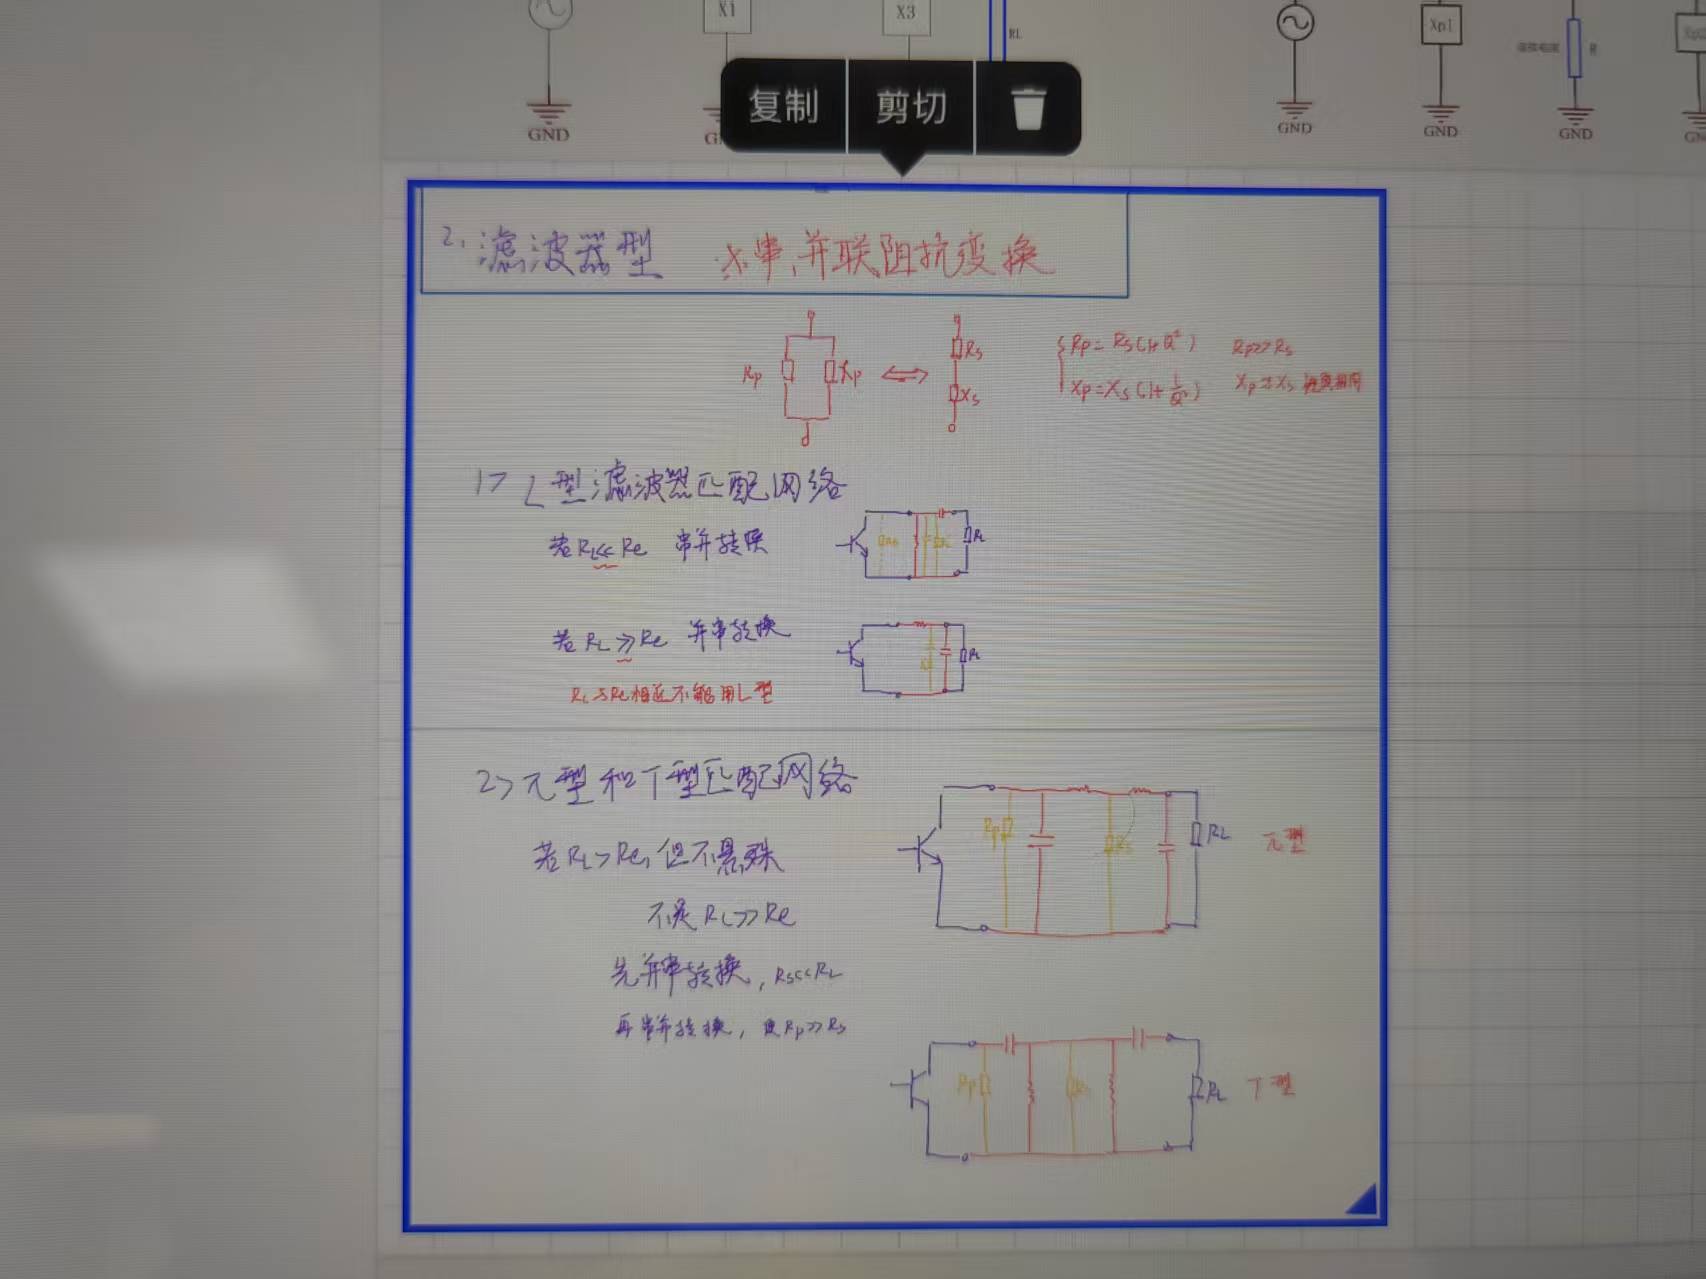 X1
X3
RL
Xp1
R
GND
GND
GND
GND
复制 剪切
2. 滤波器型 ※串、并联阻抗变换
Rp Xp Rs Xs
Rp=Rs(1+Q²) Rp>>Rs
Xp=Xs(1+1/Q²) Xp≈Xs 性质相同
1> L型滤波器匹配网络
若RL<<Re 串并转换
RL
若RL>>Re 并串转换
RL
RL与Re相近不能用L型
2> π型和T型匹配网络
若RL>Re, 但不悬殊
不是RL>>Re
先并串转换, Rs<<RL
再串并转换, 使Rp>>Rs
Rp Rs RL π型
Rp RL T型